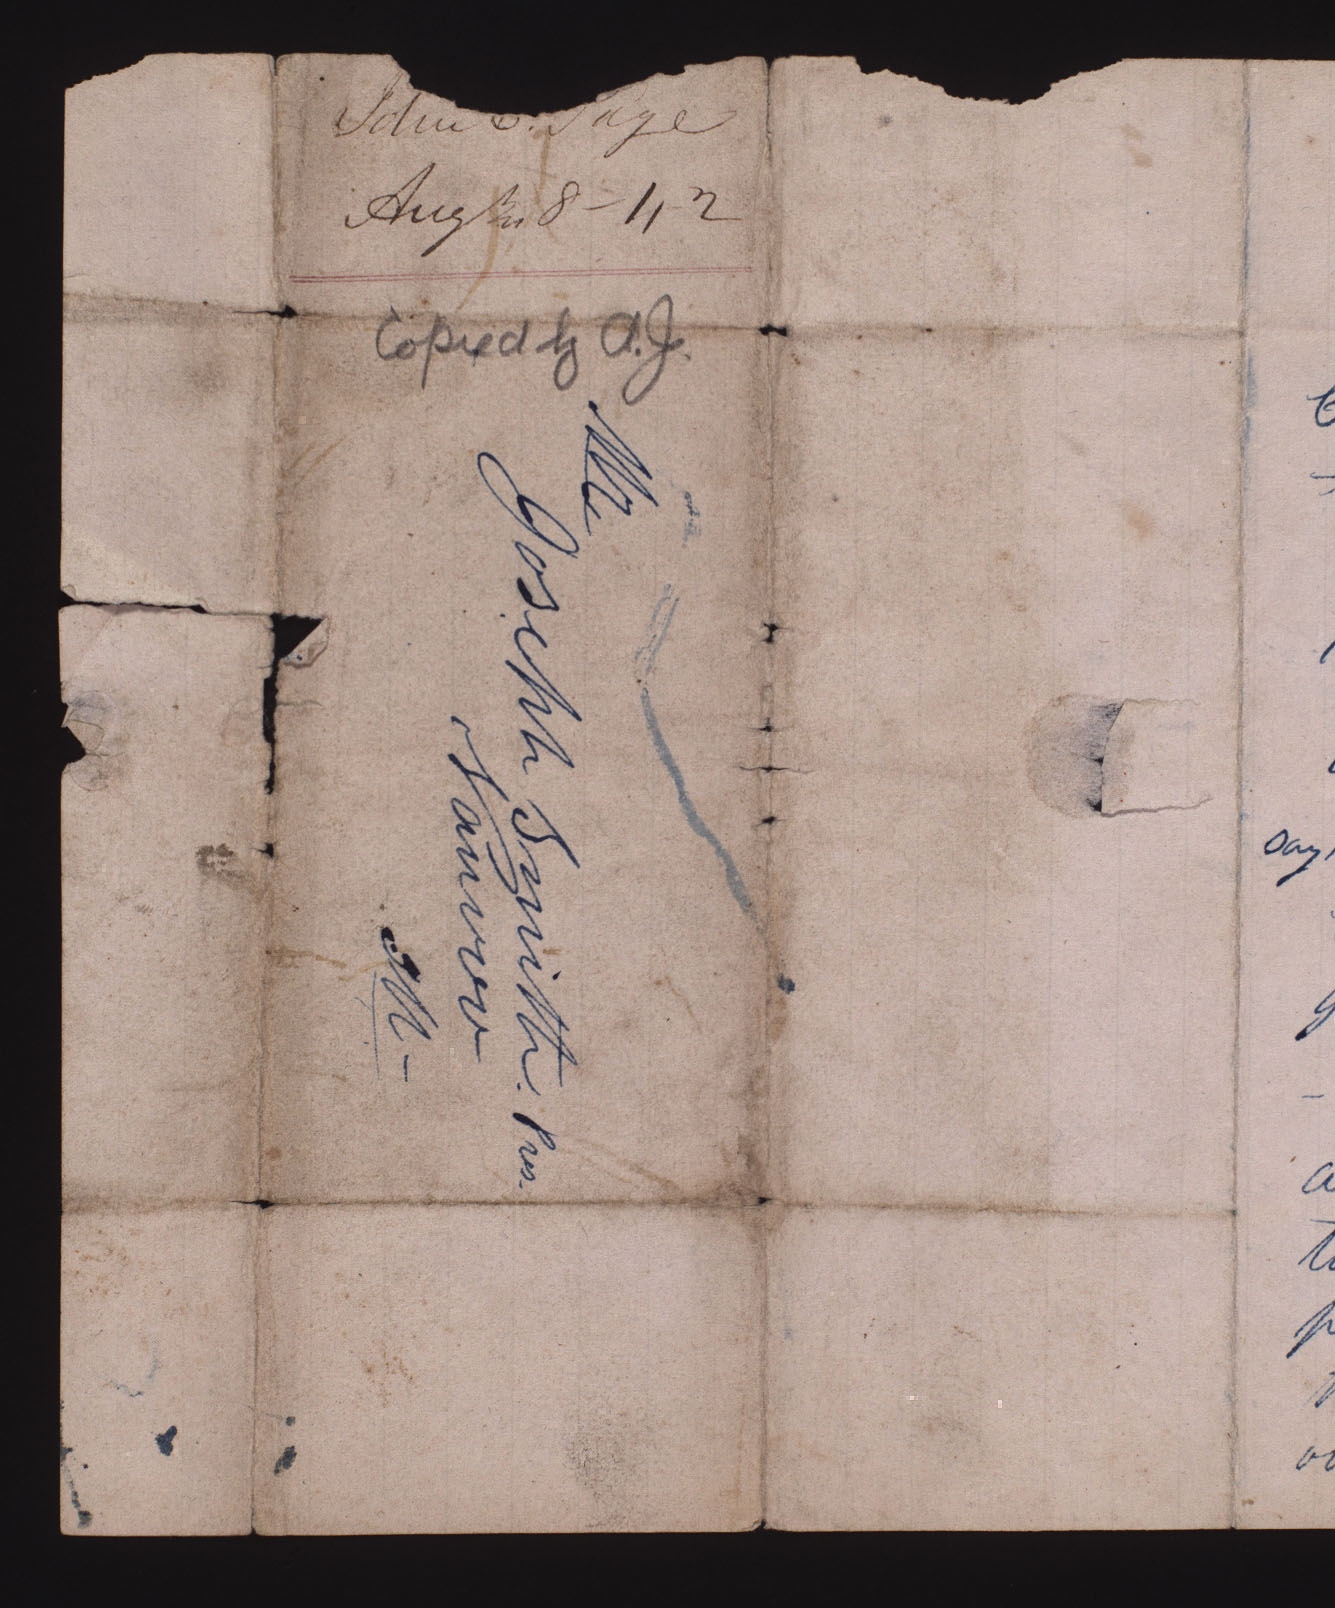 John E. Page
Aug 8 - 42
Copied by A.J.
Mr.
Joseph Smith. Pres.
Nauvoo
Ill -
say